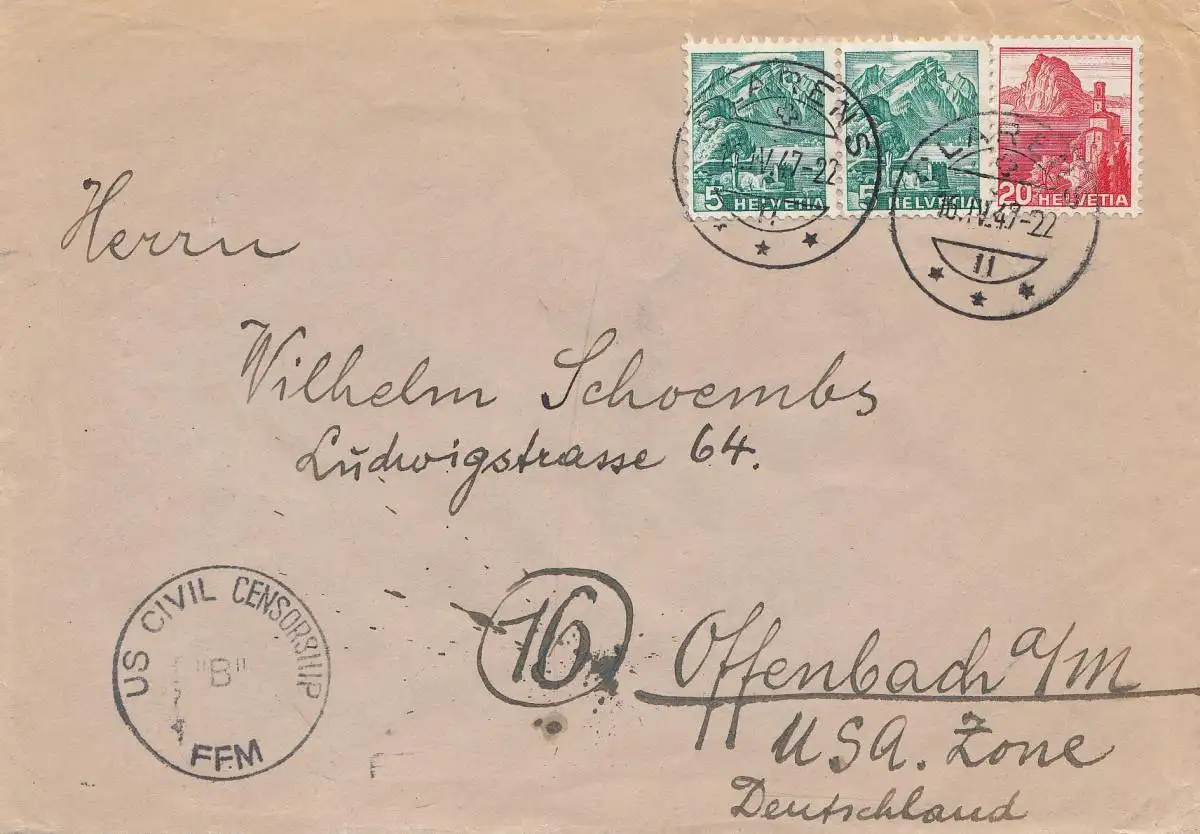 5 HELVETIA
5 HELVETIA
20 HELVETIA
CLARENS
16.IV.47-22
11
Herrn
Wilhelm Schoembs
Ludwigstrasse 64.
16
Offenbach a/M
USA. Zone
Deutschland
US CIVIL CENSORSHIP
"B"
FFM
F